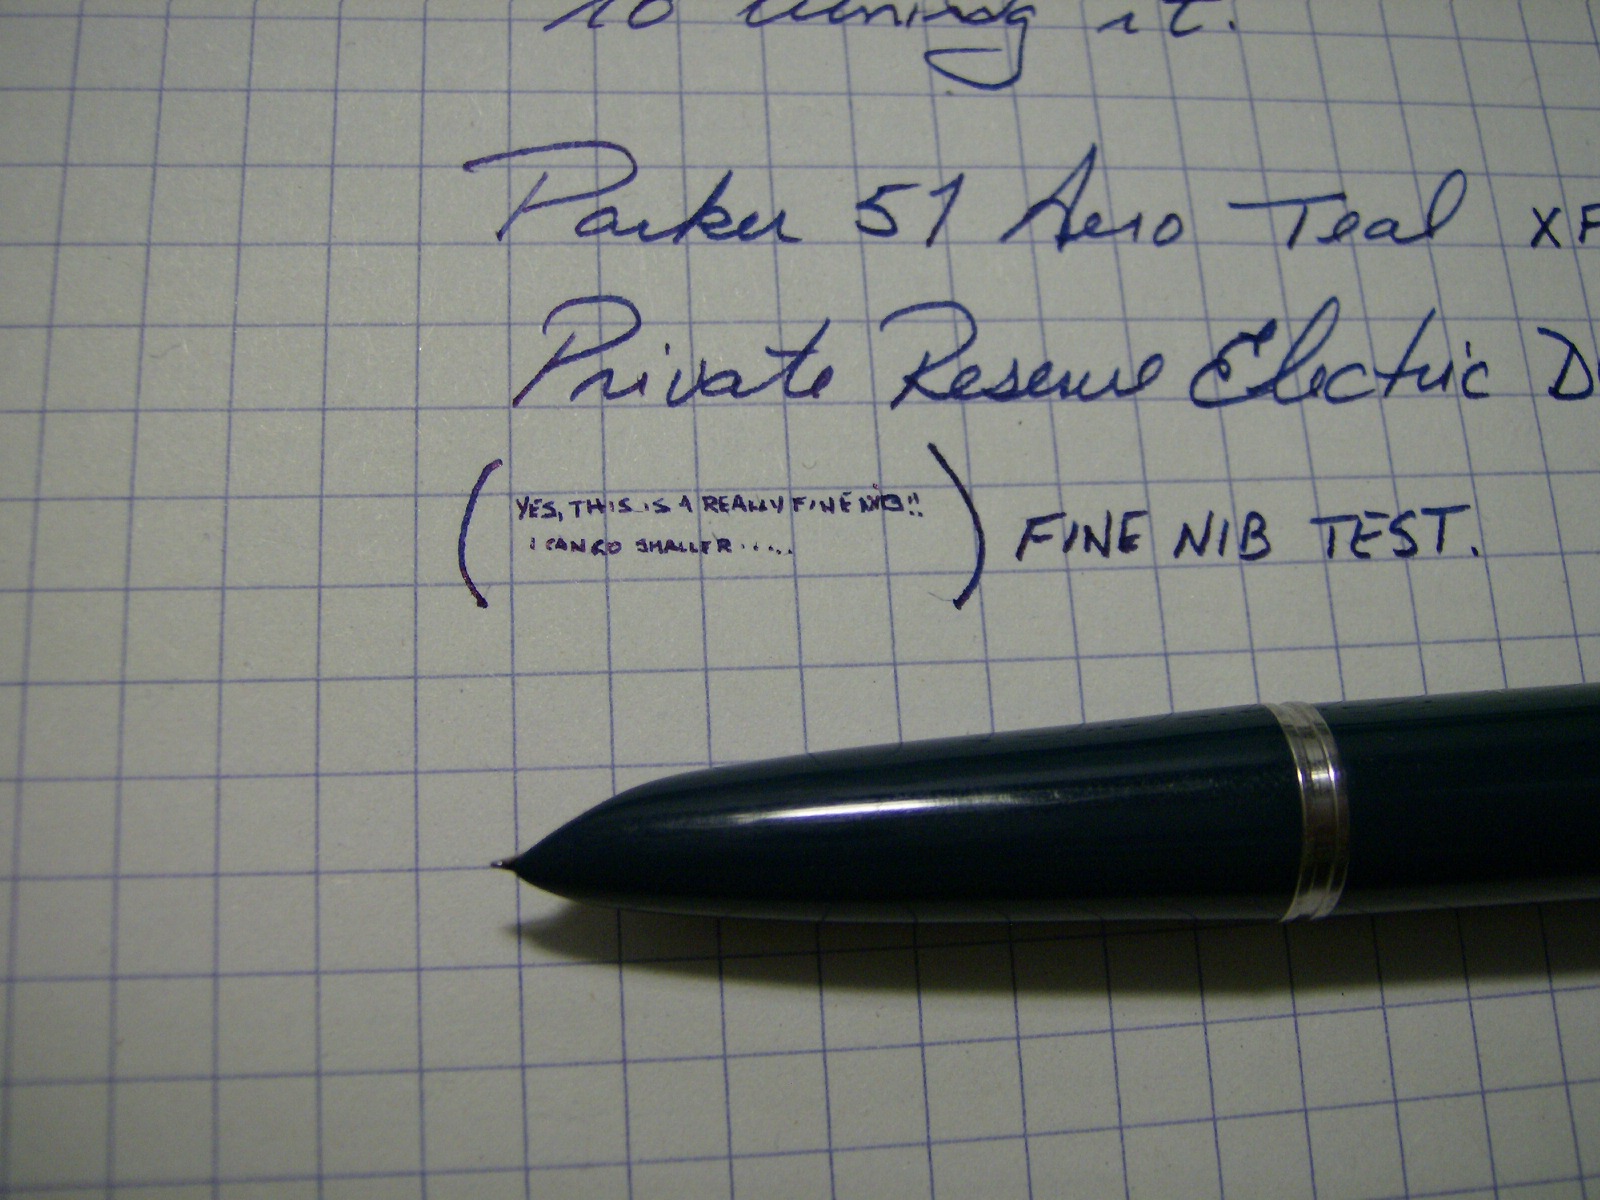 to it.
Parker 51 Aero Teal XF
Private Reserve Electric D
(YES, THIS IS A REALLY FINE NIB!!
I CAN GO SMALLER.....) FINE NIB TEST.